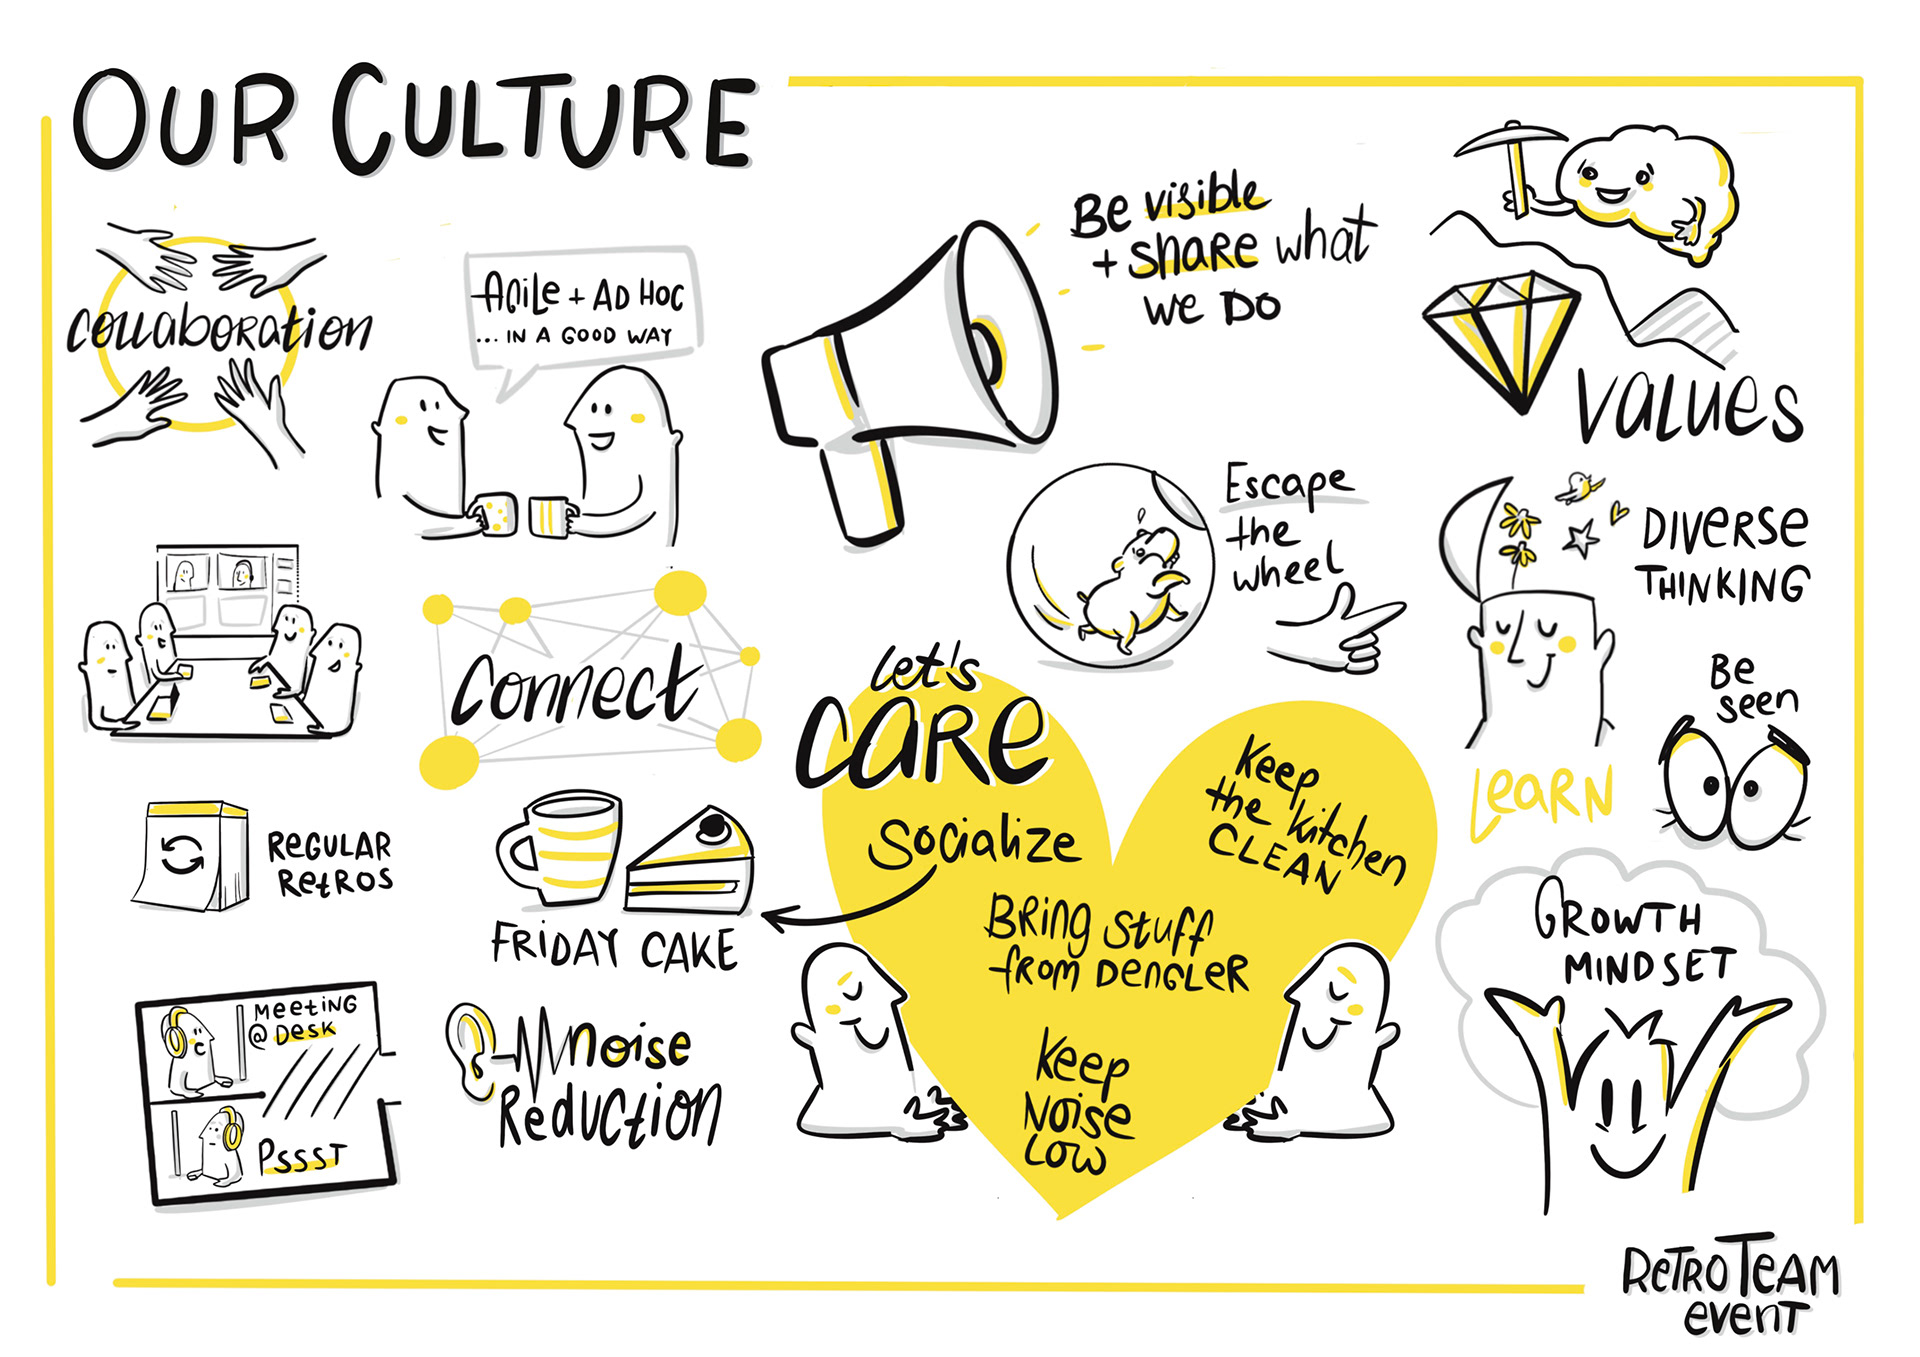 OUR CULTURE
collaboration
Agile + AD HOC
... IN A GOOD WAY
Be visible
+ share what
we DO
VALUES
Escape
the
wheel
DIVERSE
THINKING
Be
seen
LEARN
connect
Let's
CARE
Socialize
Keep
the kitchen
CLEAN
Bring stuff
from DENGLER
Keep
Noise
Low
REGULAR
RETROS
FRIDAY CAKE
GROWTH
MINDSET
MEETING
@ DESK
PSSST
Noise
Reduction
RETRO TEAM
event